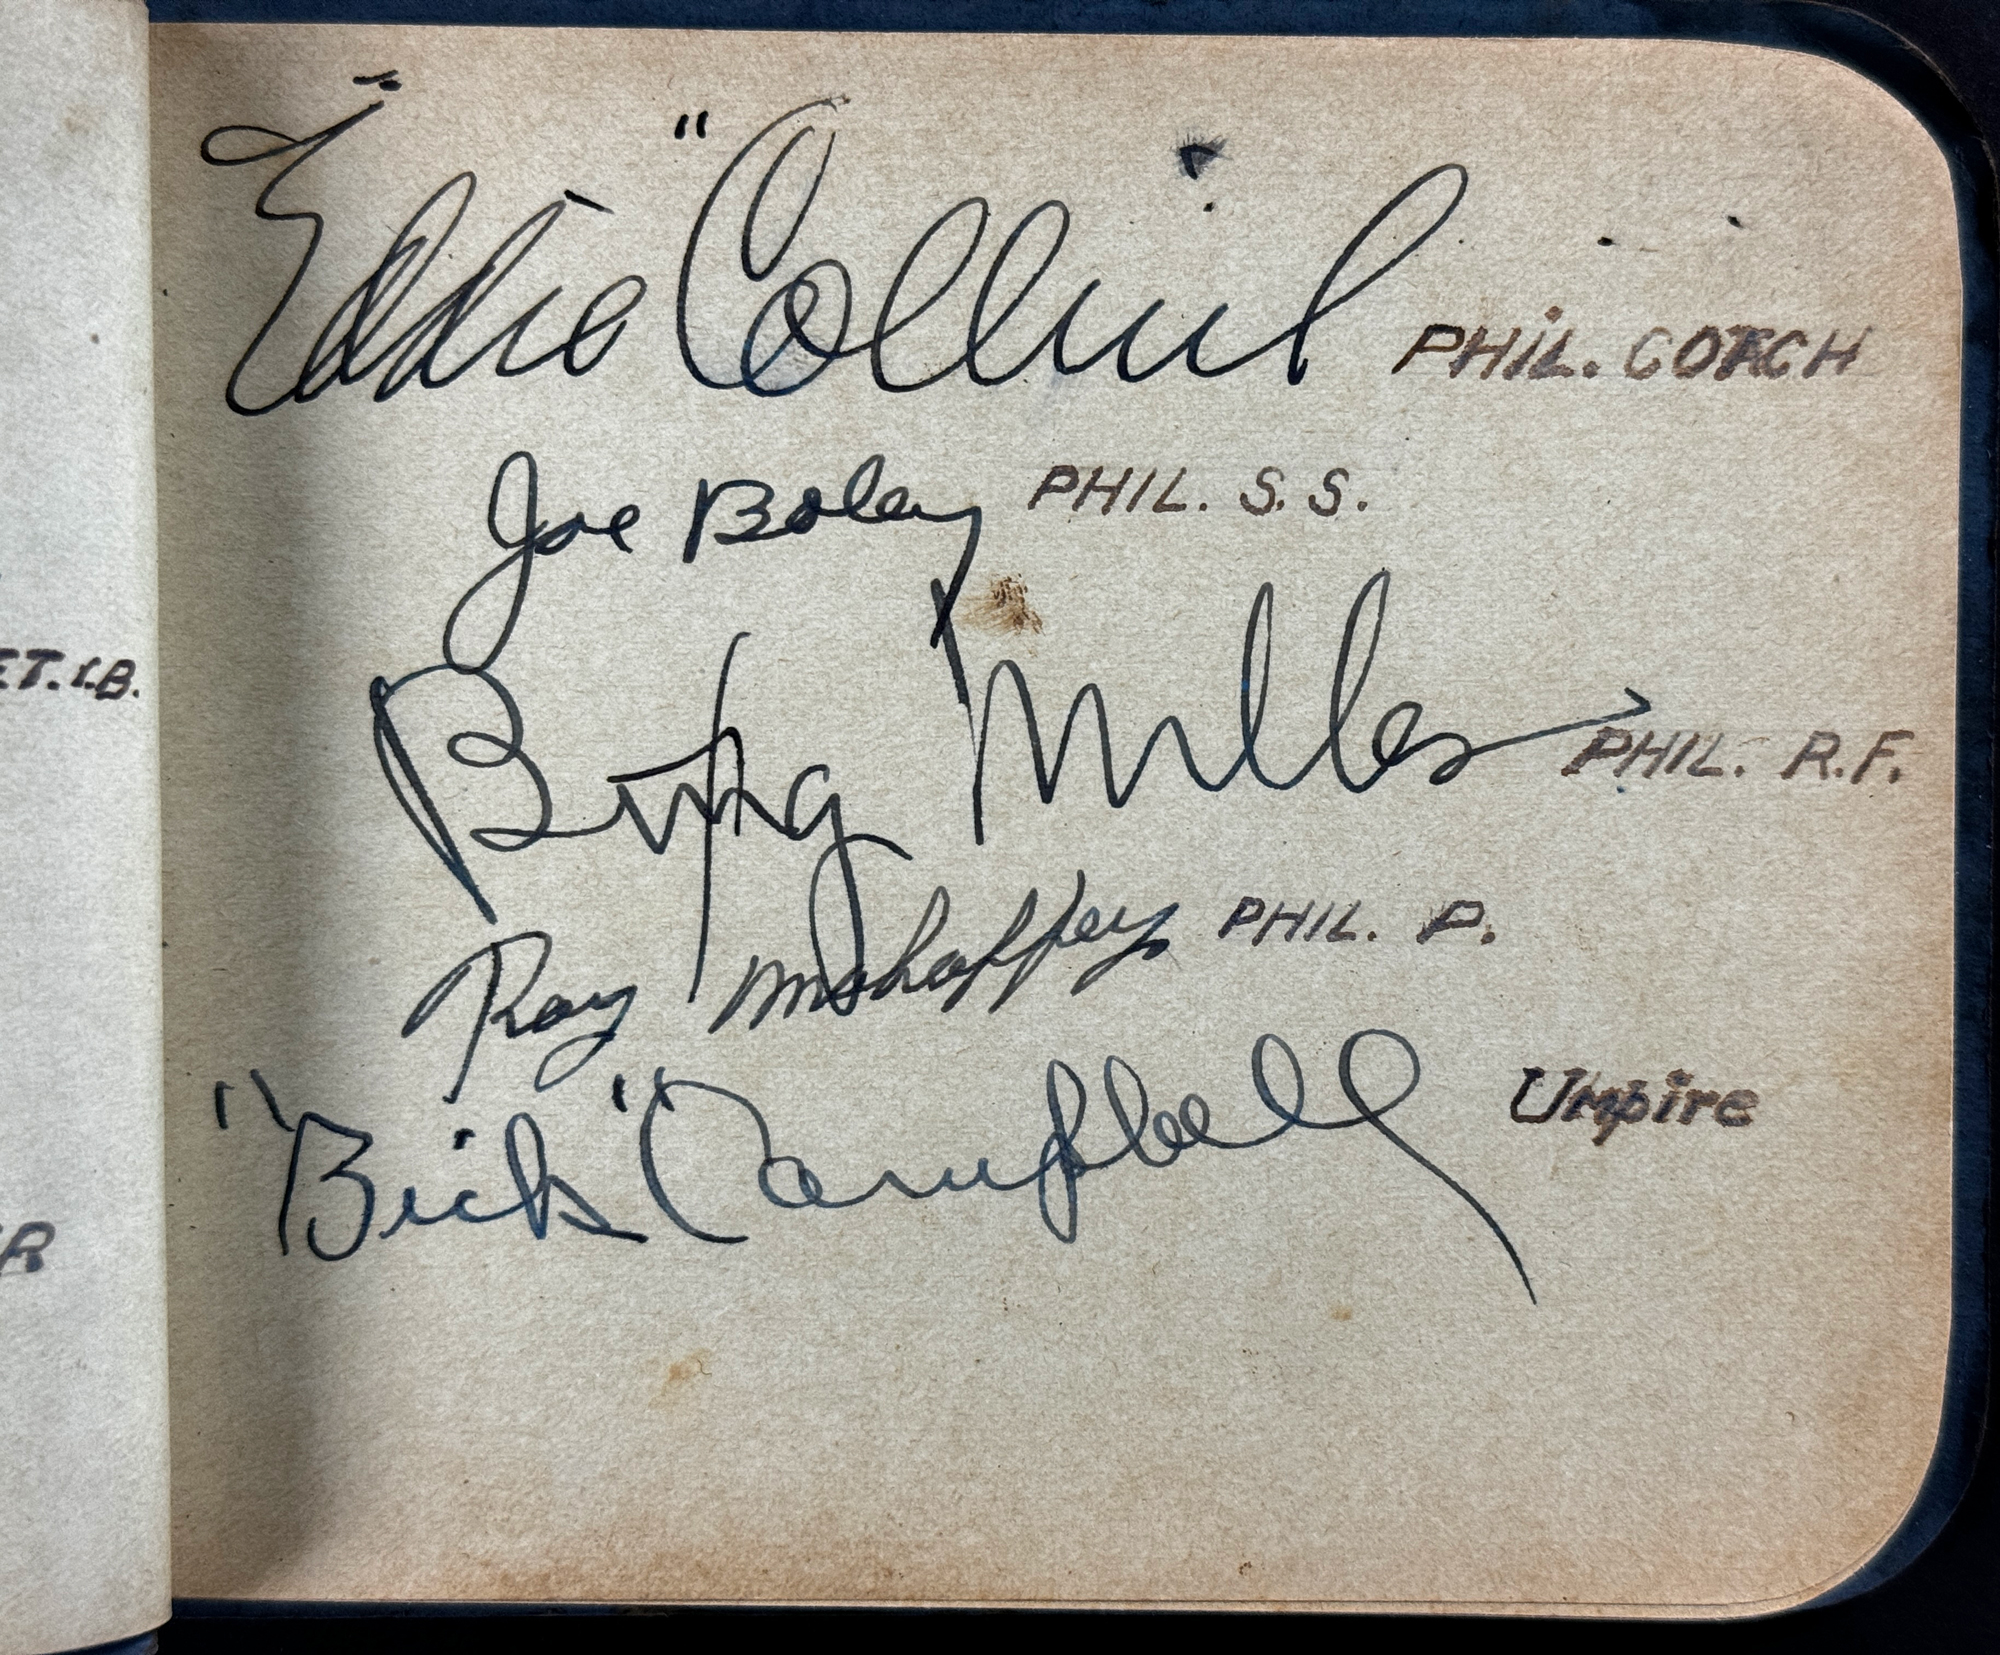 "Eddie" Collins PHIL. COACH
Joe Boley PHIL. S.S.
Bing Miller PHIL. R.F.
Roy Mahaffey PHIL. P.
"Bick" Campbell Umpire
ET. 1.B.
R